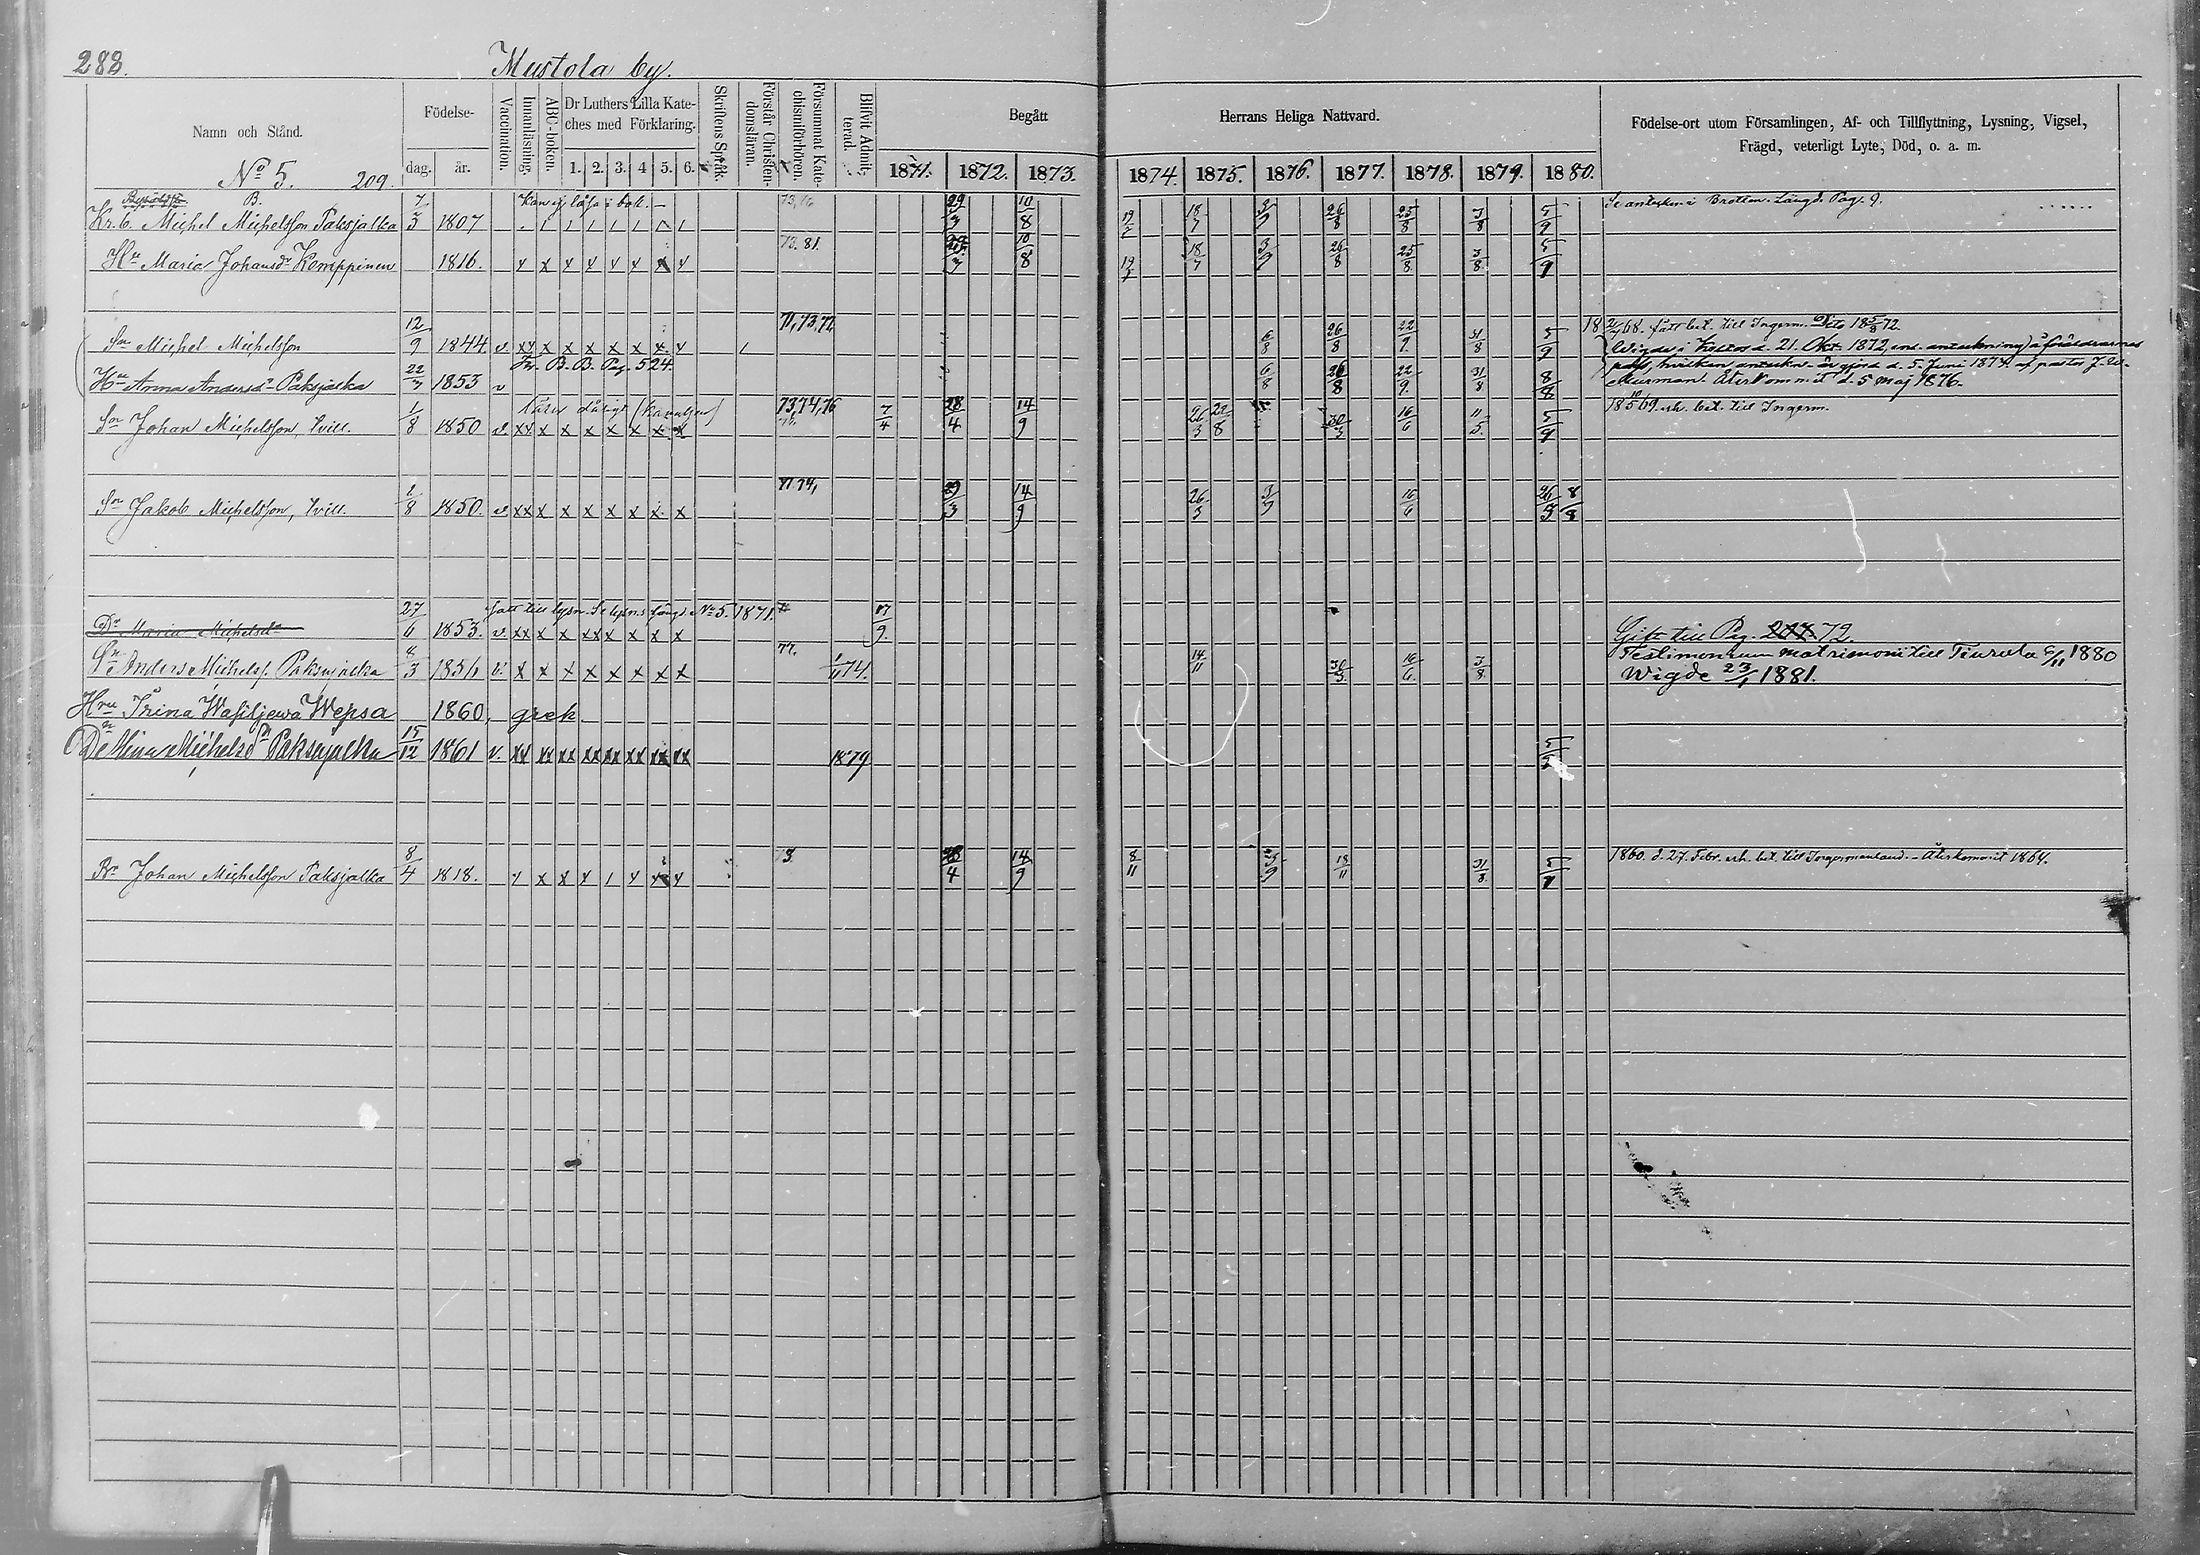 288.
Mustola by.
Namn och Stånd.
Födelse-
dag.
år.
Vaccination.
Innanläsning.
ABC-boken.
Dr Luthers Lilla Kate-
ches med Förklaring.
1. 2. 3. 4 5. 6.
Skriftens Språk.
Förstår Christen-
domsläran.
Försummat Kate-
chismiförhören.
Blifvit Admit-
terad.
Begått
Herrans Heliga Nattvard.
1871. 1872. 1873. 1874. 1875. 1876. 1877. 1878. 1879. 1880.
Födelse-ort utom Församlingen, Af- och Tillflyttning, Lysning, Vigsel,
Frägd, veterligt Lyte, Död, o. a. m.
No 5. 209.
B. Kan ej läsa i bok. —
Michel Michelsson Paksjalka 1807 29/3 10/8 19/7 18/7 3/9 26/8 25/8 3/8 5/9
Hu Maria Johansdr Kemppinen 1816. 73. 81. 10/8 19/7 18/7 3/9 26/8 25/8 3/8 5/9
Sn Michel Michelsson 12/9 1844. v. xx x x x x x x x 71, 73, 72 6/8 26/8 22/9. 31/8 5/9
fått bet. till Ingerm. Dito 18 5/8 72.
Wigde i Koltos d. 21. Okt. 1872, enl. anteckning å föräldrarnes
pass, hvilken anteckn. är gjord d. 5. Juni 1874 af pastor J. W.
Murman. Återkommit d. 5 maj 1876.
Hu Anna Andersdr Paksjalka 22/3 1853 v Kr. B. B. Pag. 524. 6/8 26/8 22/9. 31/8 8/8
Sn Johan Michelsson, tvill. 1/8 1850 v. xx x x x x x x x 73, 74, 76 7/4 28/4 14/9 26/3 22/8 30/3 16/6 11/5. 5/9
erh. bet. till Ingerm.
Sn Jakob Michelsson, tvill. 1/8 1850. v. xx x x x x x x x 71 74, 29/3 14/9 26/3 3/9 16/6 26/3 8/8
Dr Maria Michelsdr 27/6 1853. v. xx x x xx x x x x 17/9.
fått till lysn. Se lysn.s längd No 5. 1871.
Gift till Pag. 72.
Sn Anders Michelss. Paksujalka 8/3 1856 v. x x x x x x x x 77. 74. 14/11 30/3. 16/6. 3/8.
Testimonium matrimoni till Tiurula 6/11 1880
Wigde 23/1 1881.
Hru Irina Wasiljewa Wepsa 1860, grek
Dn Mina Michelsdr Paksujalka 15/12 1861 v. xx xx xx xx xx xx xx xx 1879
Br Johan Michelsson Paksjalka 8/4 1818. 28/4 14/9 8/11 3/9 18/11 31/8. 5/9
1860. d. 27. Febr. erh. bet. till Ingermanland. – Återkommit 1864.